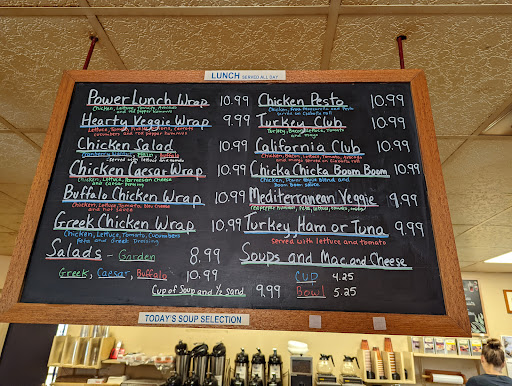 LUNCH SERVED ALL DAY
Power Lunch Wrap 10.99
Chicken, Lettuce, Tomato, Avocado
and red pepper hummus
Hearty Veggie Wrap 9.99
Lettuce, Tomato, Onions, Carrots
cucumbers and red pepper hummus
Chicken Salad 10.99
Cranberry Walnut, Plain, Buffalo
Served with lettuce and tomato
Chicken Caesar Wrap 10.99
Chicken, Lettuce, Parmesan Cheese
and Caesar Dressing
Buffalo Chicken Wrap 10.99
Chicken, Lettuce, Tomato, Bleu Cheese
and Hot Sauce
Greek Chicken Wrap 10.99
Chicken, Lettuce, Tomato, Cucumbers
Feta and Greek Dressing
Salads - Garden 8.99
Greek, Caesar, Buffalo 10.99
Cup of Soup and 1/2 Sand. 9.99
Chicken Pesto 10.99
Chicken, Fresh Mozzarella and Pesto
served on Ciabatta roll
Turkey Club 10.99
Turkey, Bacon, Lettuce, Tomato
and mayo
California Club 10.99
Chicken, Bacon, Lettuce, Tomato, Avocado
and mayo served on Ciabatta roll
Chicka Chicka Boom Boom 10.99
Chicken, Cheese Blend and
Boom Boom sauce
Mediterranean Veggie 9.99
Red pepper hummus, Feta, lettuce, tomato
Turkey, Ham or Tuna 9.99
Served with lettuce and tomato
Soups and Mac and Cheese
CUP 4.25
Bowl 5.25
TODAY'S SOUP SELECTION